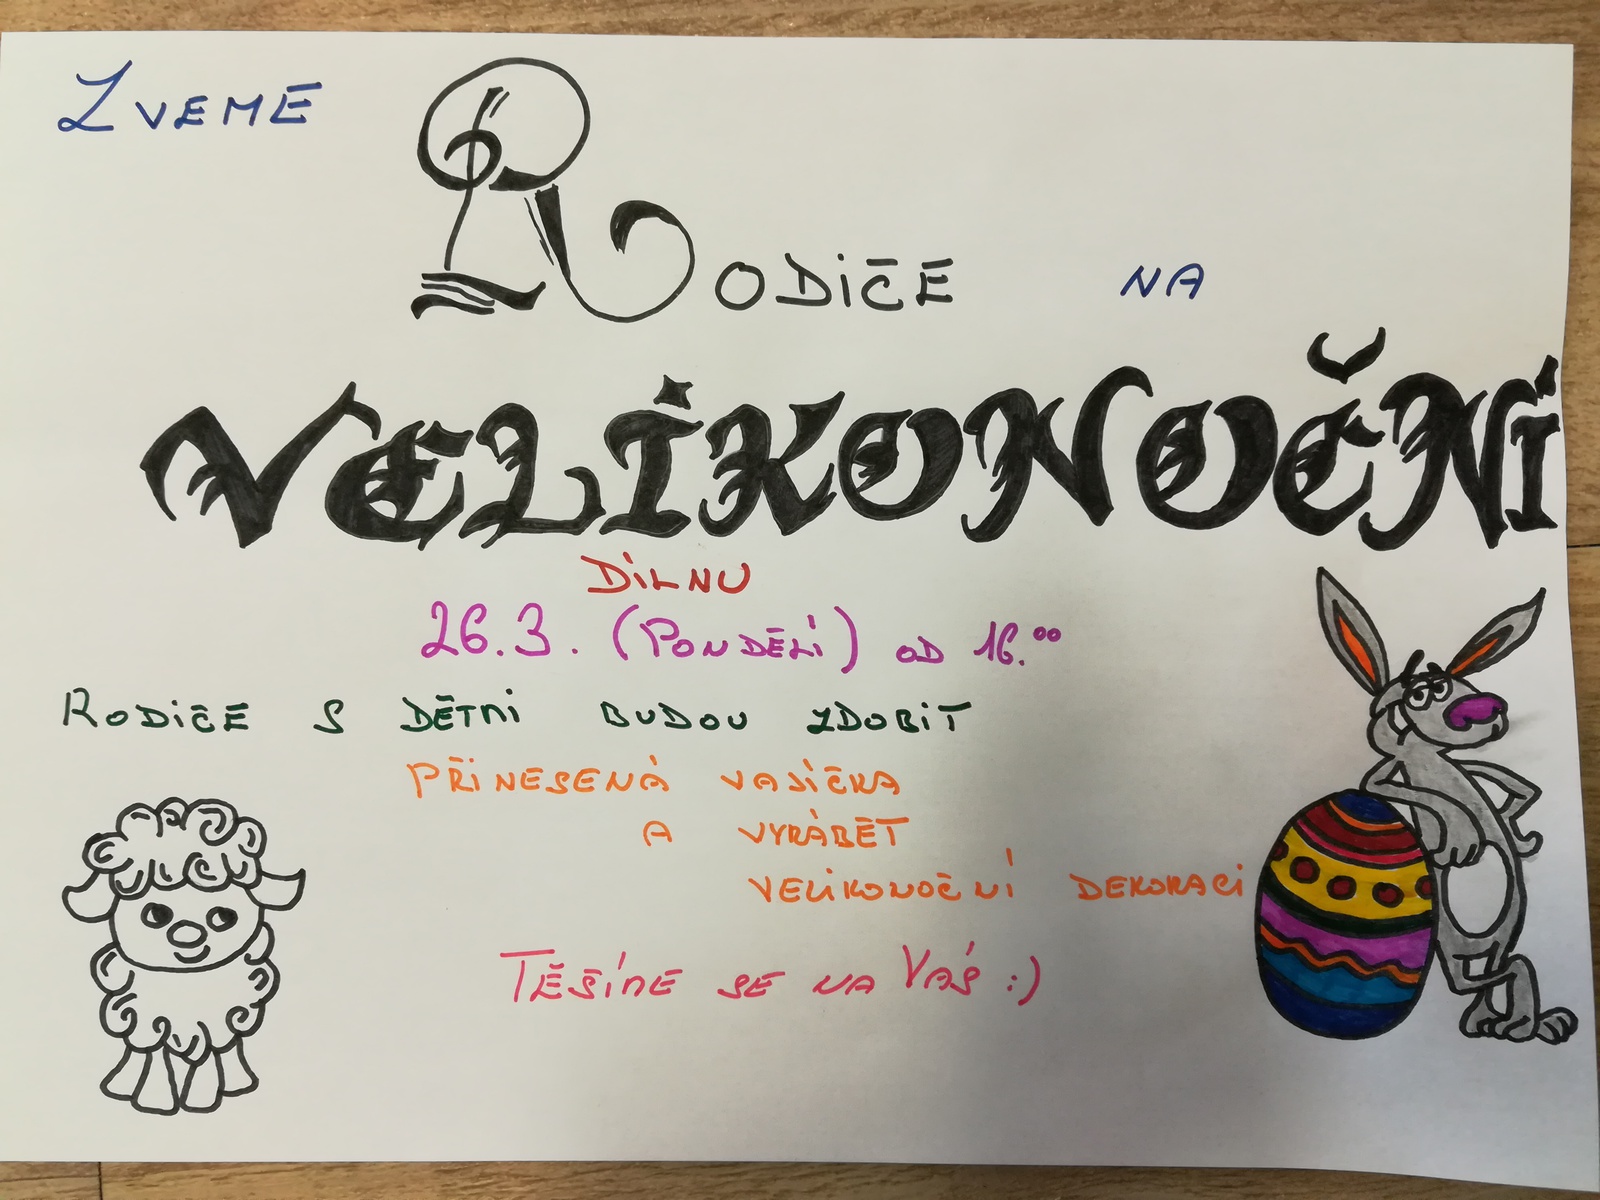 ZVEME
RODIČE NA
VELIKONOČNÍ
DÍLNU
26.3. (PONDĚLÍ) OD 16.00
RODIČE S DĚTMI BUDOU ZDOBIT
PŘINESENÁ VAJÍČKA
A VYRÁBĚT
VELIKONOČNÍ DEKORACI
TĚŠÍME SE NA VÁS :)